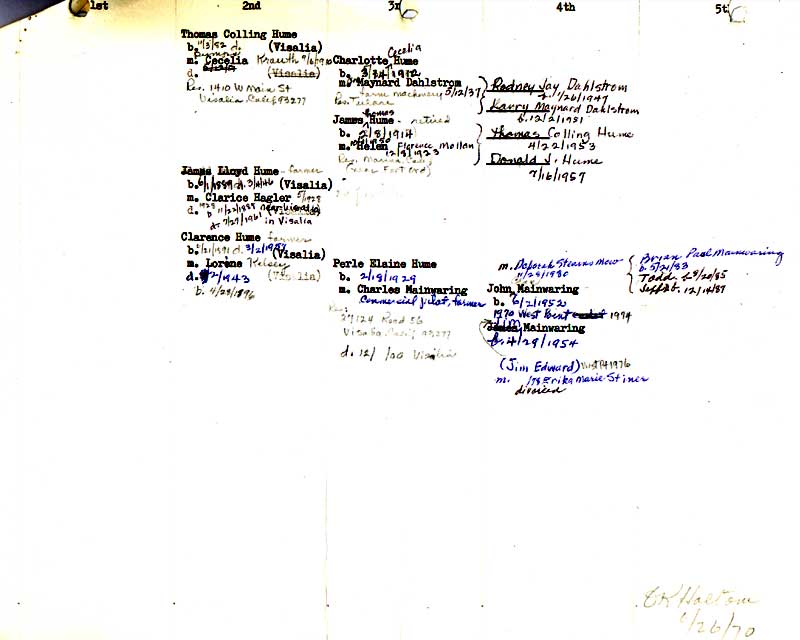 1st 2nd 3r 4th 5t
Thomas Colling Hume
b. 11/3/82 d. (Visalia)
m. Cecelia Krauth
d. (Visalia)
Res. 1410 W Main St
Visalia, Calif 93277
Cecelia
Charlotte Hume
b. 3/ /1912
m. Maynard Dahlstrom 5/12/37
farm machinery
Res. Tulare
Rodney Jay Dahlstrom
1/26/1947
Larry Maynard Dahlstrom
b. 12/2/1951
Thomas
James Hume - retired
b. 2/8/1914
m. Helen Florence Mollan
12/8/1923
Res. Marina Calif
(near Fort Ord)
Thomas Colling Hume
4/22/1953
Donald J. Hume
7/16/1957
James Lloyd Hume - farmer
b. 6/1/1889 d. 3/ /46 (Visalia)
m. Clarice Hagler 5/1928
b 11/22/1888 near Visalia
d. 7/29/1961 in Visalia
Clarence Hume farmer
b. /21/1891 d. 3/2/1957
(Visalia)
m. Lorene Kelsey
d. /2/1943 (Visalia)
b. 4/28/1896
Perle Elaine Hume
b. 2/18/1929
m. Charles Mainwaring
Commercial pilot, farmer
Res:
27124 Road 56
Visalia Calif 93277
d. 12/ /00 Visalia
m. Deborah Stearns Mow
11/28/1980
John Mainwaring
b. 6/2/1952
1970 West Point 1974
Jim
James Mainwaring
b. 4/29/1954
(Jim Edward) West Pt 1976
m. /78 Erika Marie Stiner
divorced
Brian Paul Mainwaring
b. 5/21/83
Todd 2/20/85
Jeff b. 12/14/87
CK Haltom
6/26/70